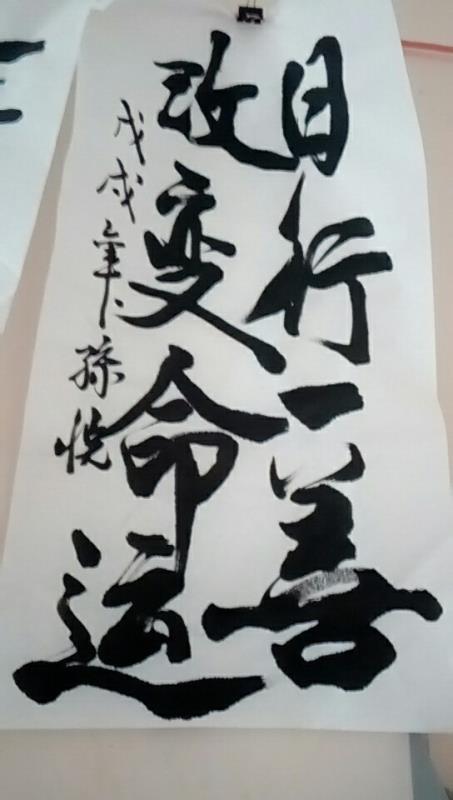 日行一善
改变命运
戊戌年孙悦